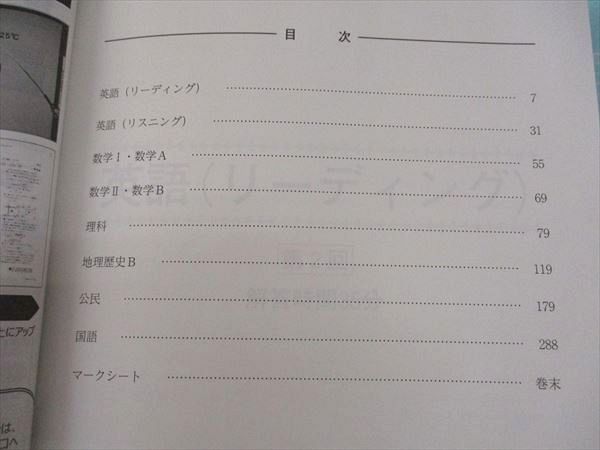 目　次
英語（リーディング） 7
英語（リスニング） 31
数学Ⅰ・数学A 55
数学Ⅱ・数学B 69
理科 79
地理歴史B 119
公民 179
国語 288
マークシート 巻末
25℃
とにアップ
は、
コへ